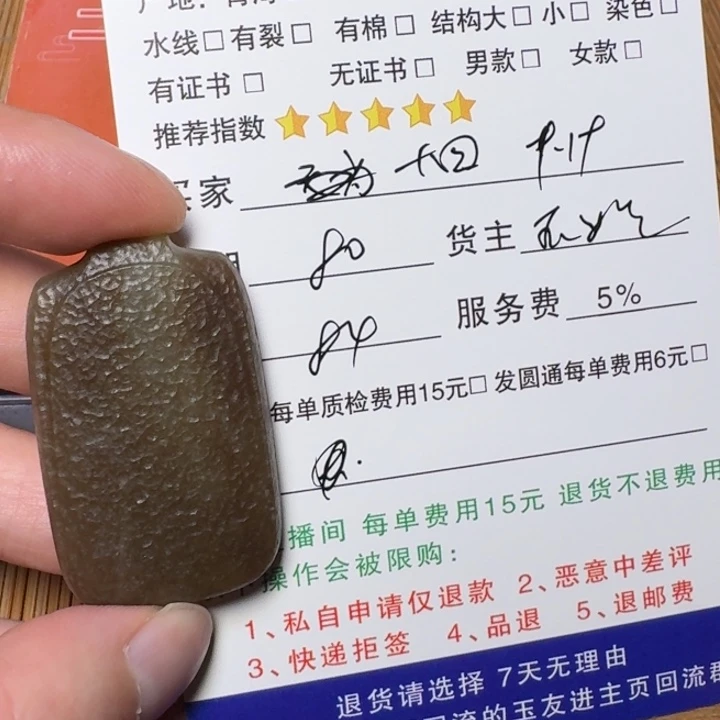 产地：青海
水线□ 有裂□ 有棉□ 结构大□ 小□ 染色□
有证书□ 无证书□ 男款□ 女款□
推荐指数
买家 十回
80 货主
84 服务费 5%
每单质检费用15元□ 发圆通每单费用6元□
播间 每单费用15元 退货不退费用
操作会被限购：
1、私自申请仅退款 2、恶意中差评
3、快递拒签 4、品退 5、退邮费
退货请选择 7天无理由
回流的玉友进主页回流群